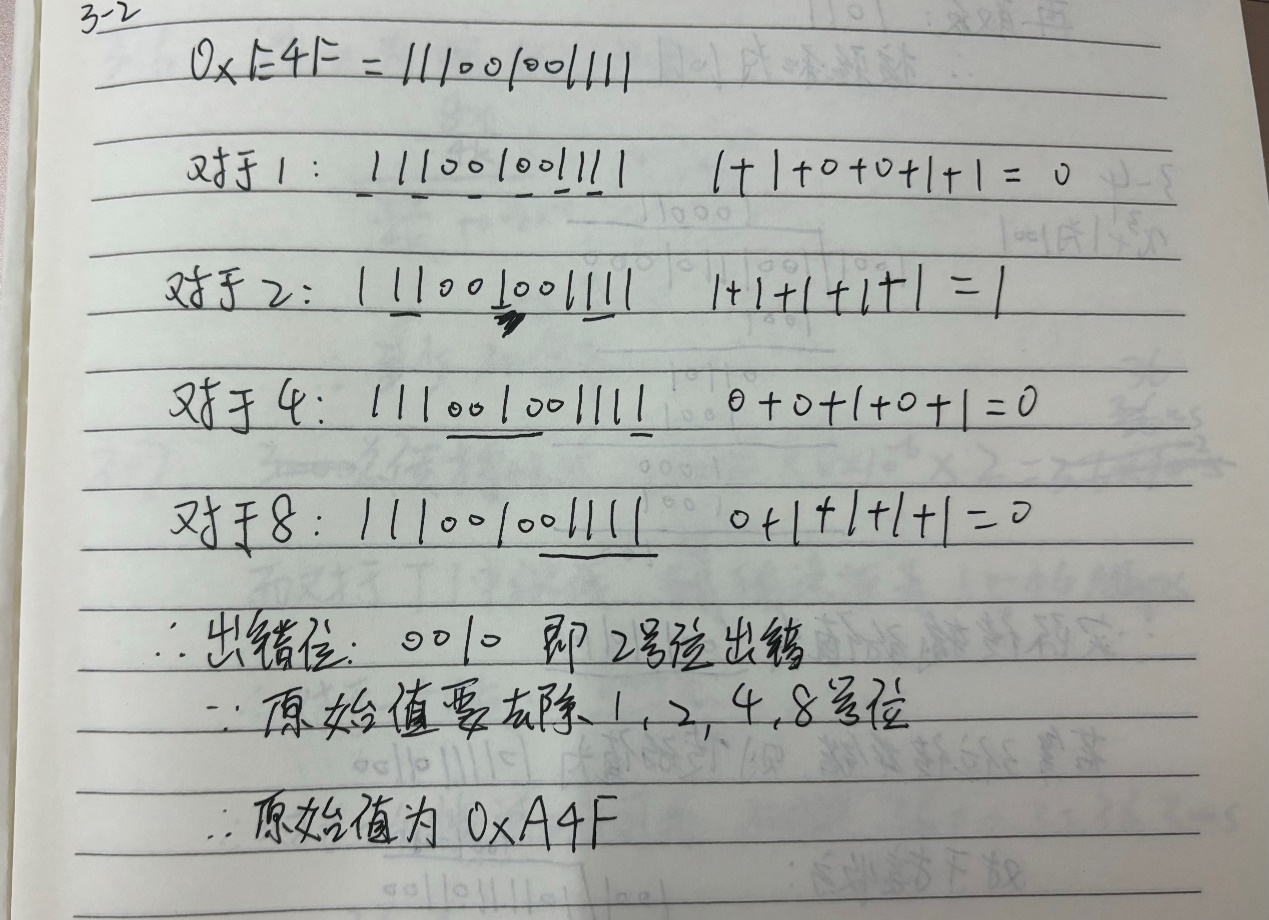 3-2
0xE4F = 111001001111
对于1: 111001001111 1+1+0+0+1+1 = 0
对于2: 111001001111 1+1+1+1+1 = 1
对于4: 111001001111 0+0+1+0+1=0
对于8: 111001001111 0+1+1+1+1=0
∴出错位: 0010 即2号位出错
∵原始值要去除1, 2, 4, 8号位
∴原始值为0xA4F